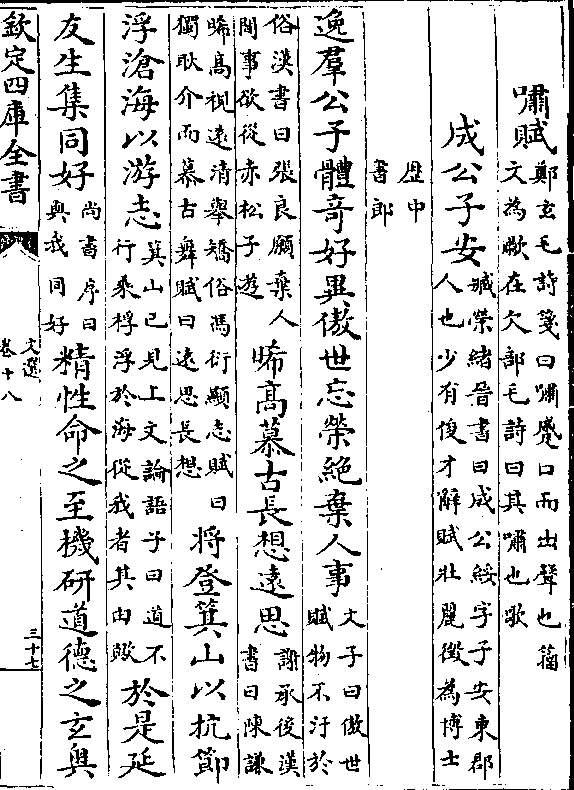 嘯賦鄭玄毛詩箋曰嘯蹙口而出聲也籀
文為歗在欠部毛詩曰其嘯也歌
成公子安臧榮緒晉書曰成公綏字子安東郡
人也少有俊才辭賦壯麗徴為博士
歴中
書郎
逸羣公子體奇好異傲世忘榮絶棄人事文子曰傲世
賦物不汙於
俗漢書曰張良願棄人
間事欲從赤松子遊晞髙慕古長想遠思謝承後漢
書曰陳謙
晞髙視遠清舉矯俗馮衍顯志賦曰
獨耿介而慕古舞賦曰遠思長想將登箕山以抗節
浮滄海以游志箕山已見上文論語子曰道不
行乘桴浮於海從我者其由歟於是延
友生集同好尚書序曰
與我同好精性命之至機研道德之玄奥
欽定四庫全書
文選
卷十八
三十七